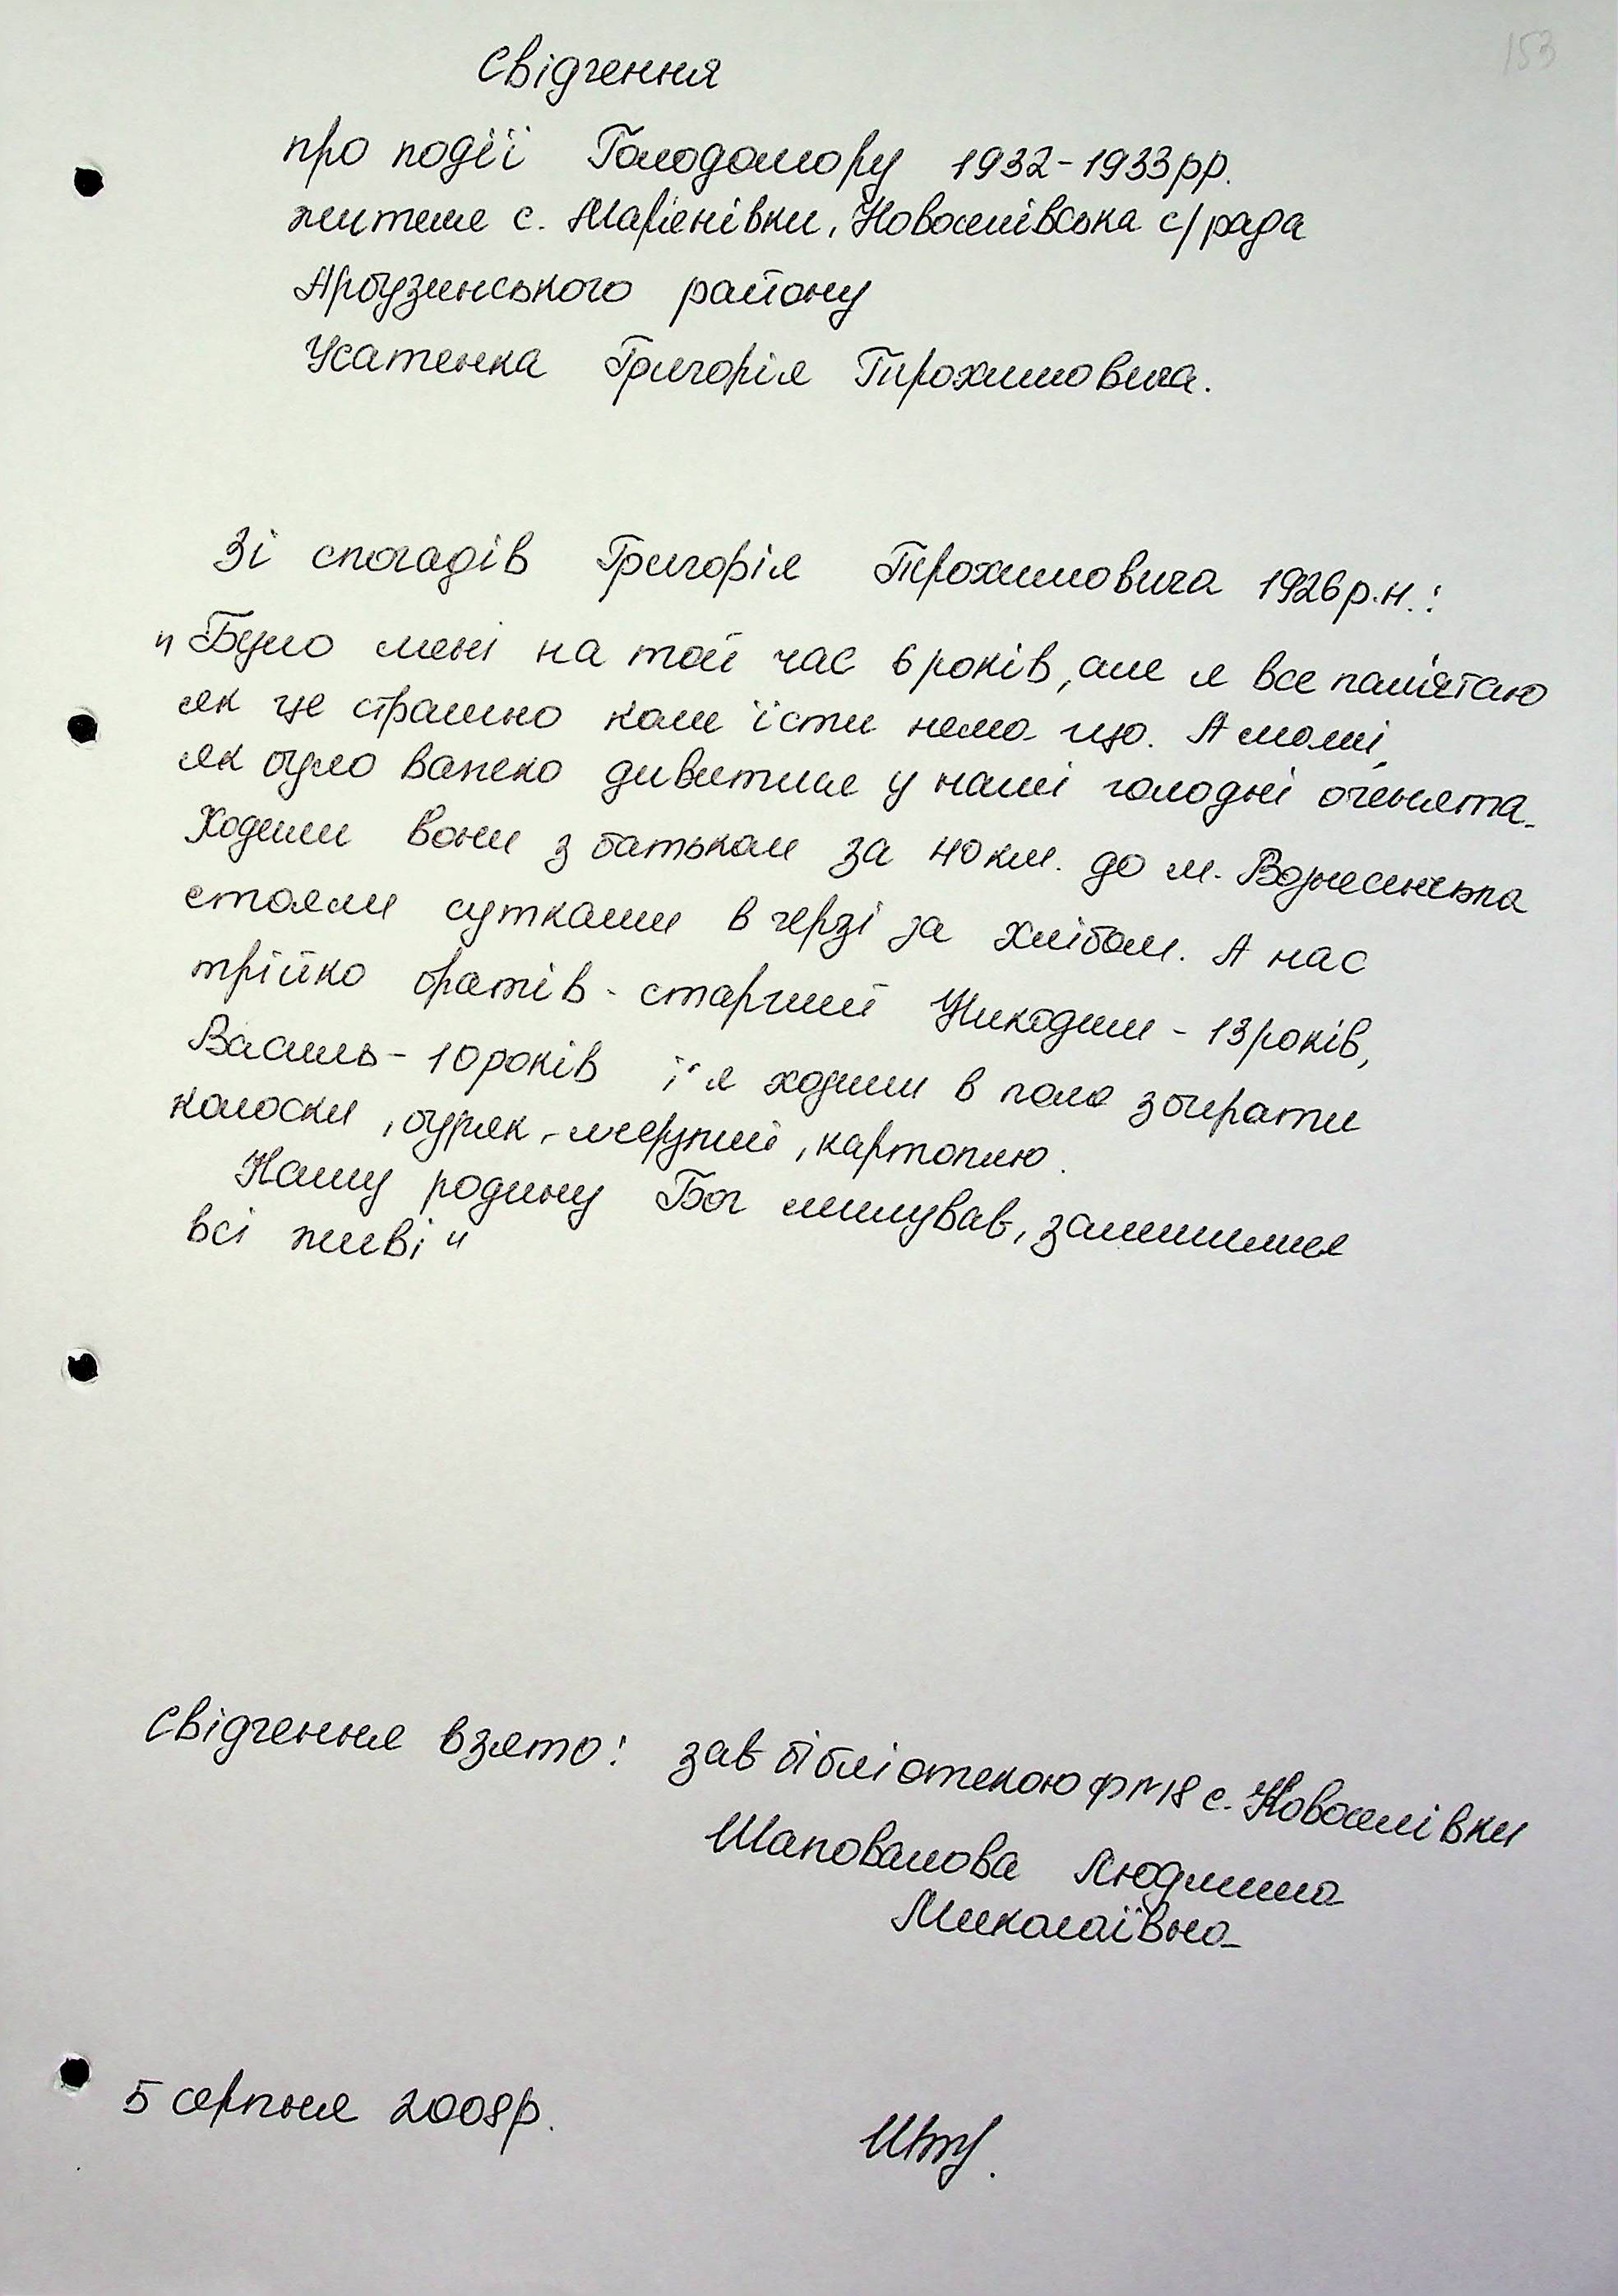 153
Свідчення
про події Голодомору 1932-1933рр.
жителя с. Мар'єнівки, Новоселівська с/рада
Арбузинського району
Усатенка Григорія Трохимовича.
Зі спогадів Григорія Трохимовича 1926р.н.:
"Було мені на той час 6 років, але я все пам'ятаю
як це страшно коли їсти нема що. А мамі,
як було важко дивитися у наші голодні оченята.
Ходили вони з батьком за 40 км. до м. Вознесенська
стояли сутками в черзі за хлібом. А нас
трійко братів - старший Никодим - 13 років,
Василь - 10 років і я ходили в поле збирати
колоски, буряк, мерзлі, картоплю.
Нашу родину Бог милував, залишилися
всі живі"
Свідчення взято: зав бібліотекою ф №18 с. Новоселівки
Шаповалова Людмила
Миколаївна
5 серпня 2008р.